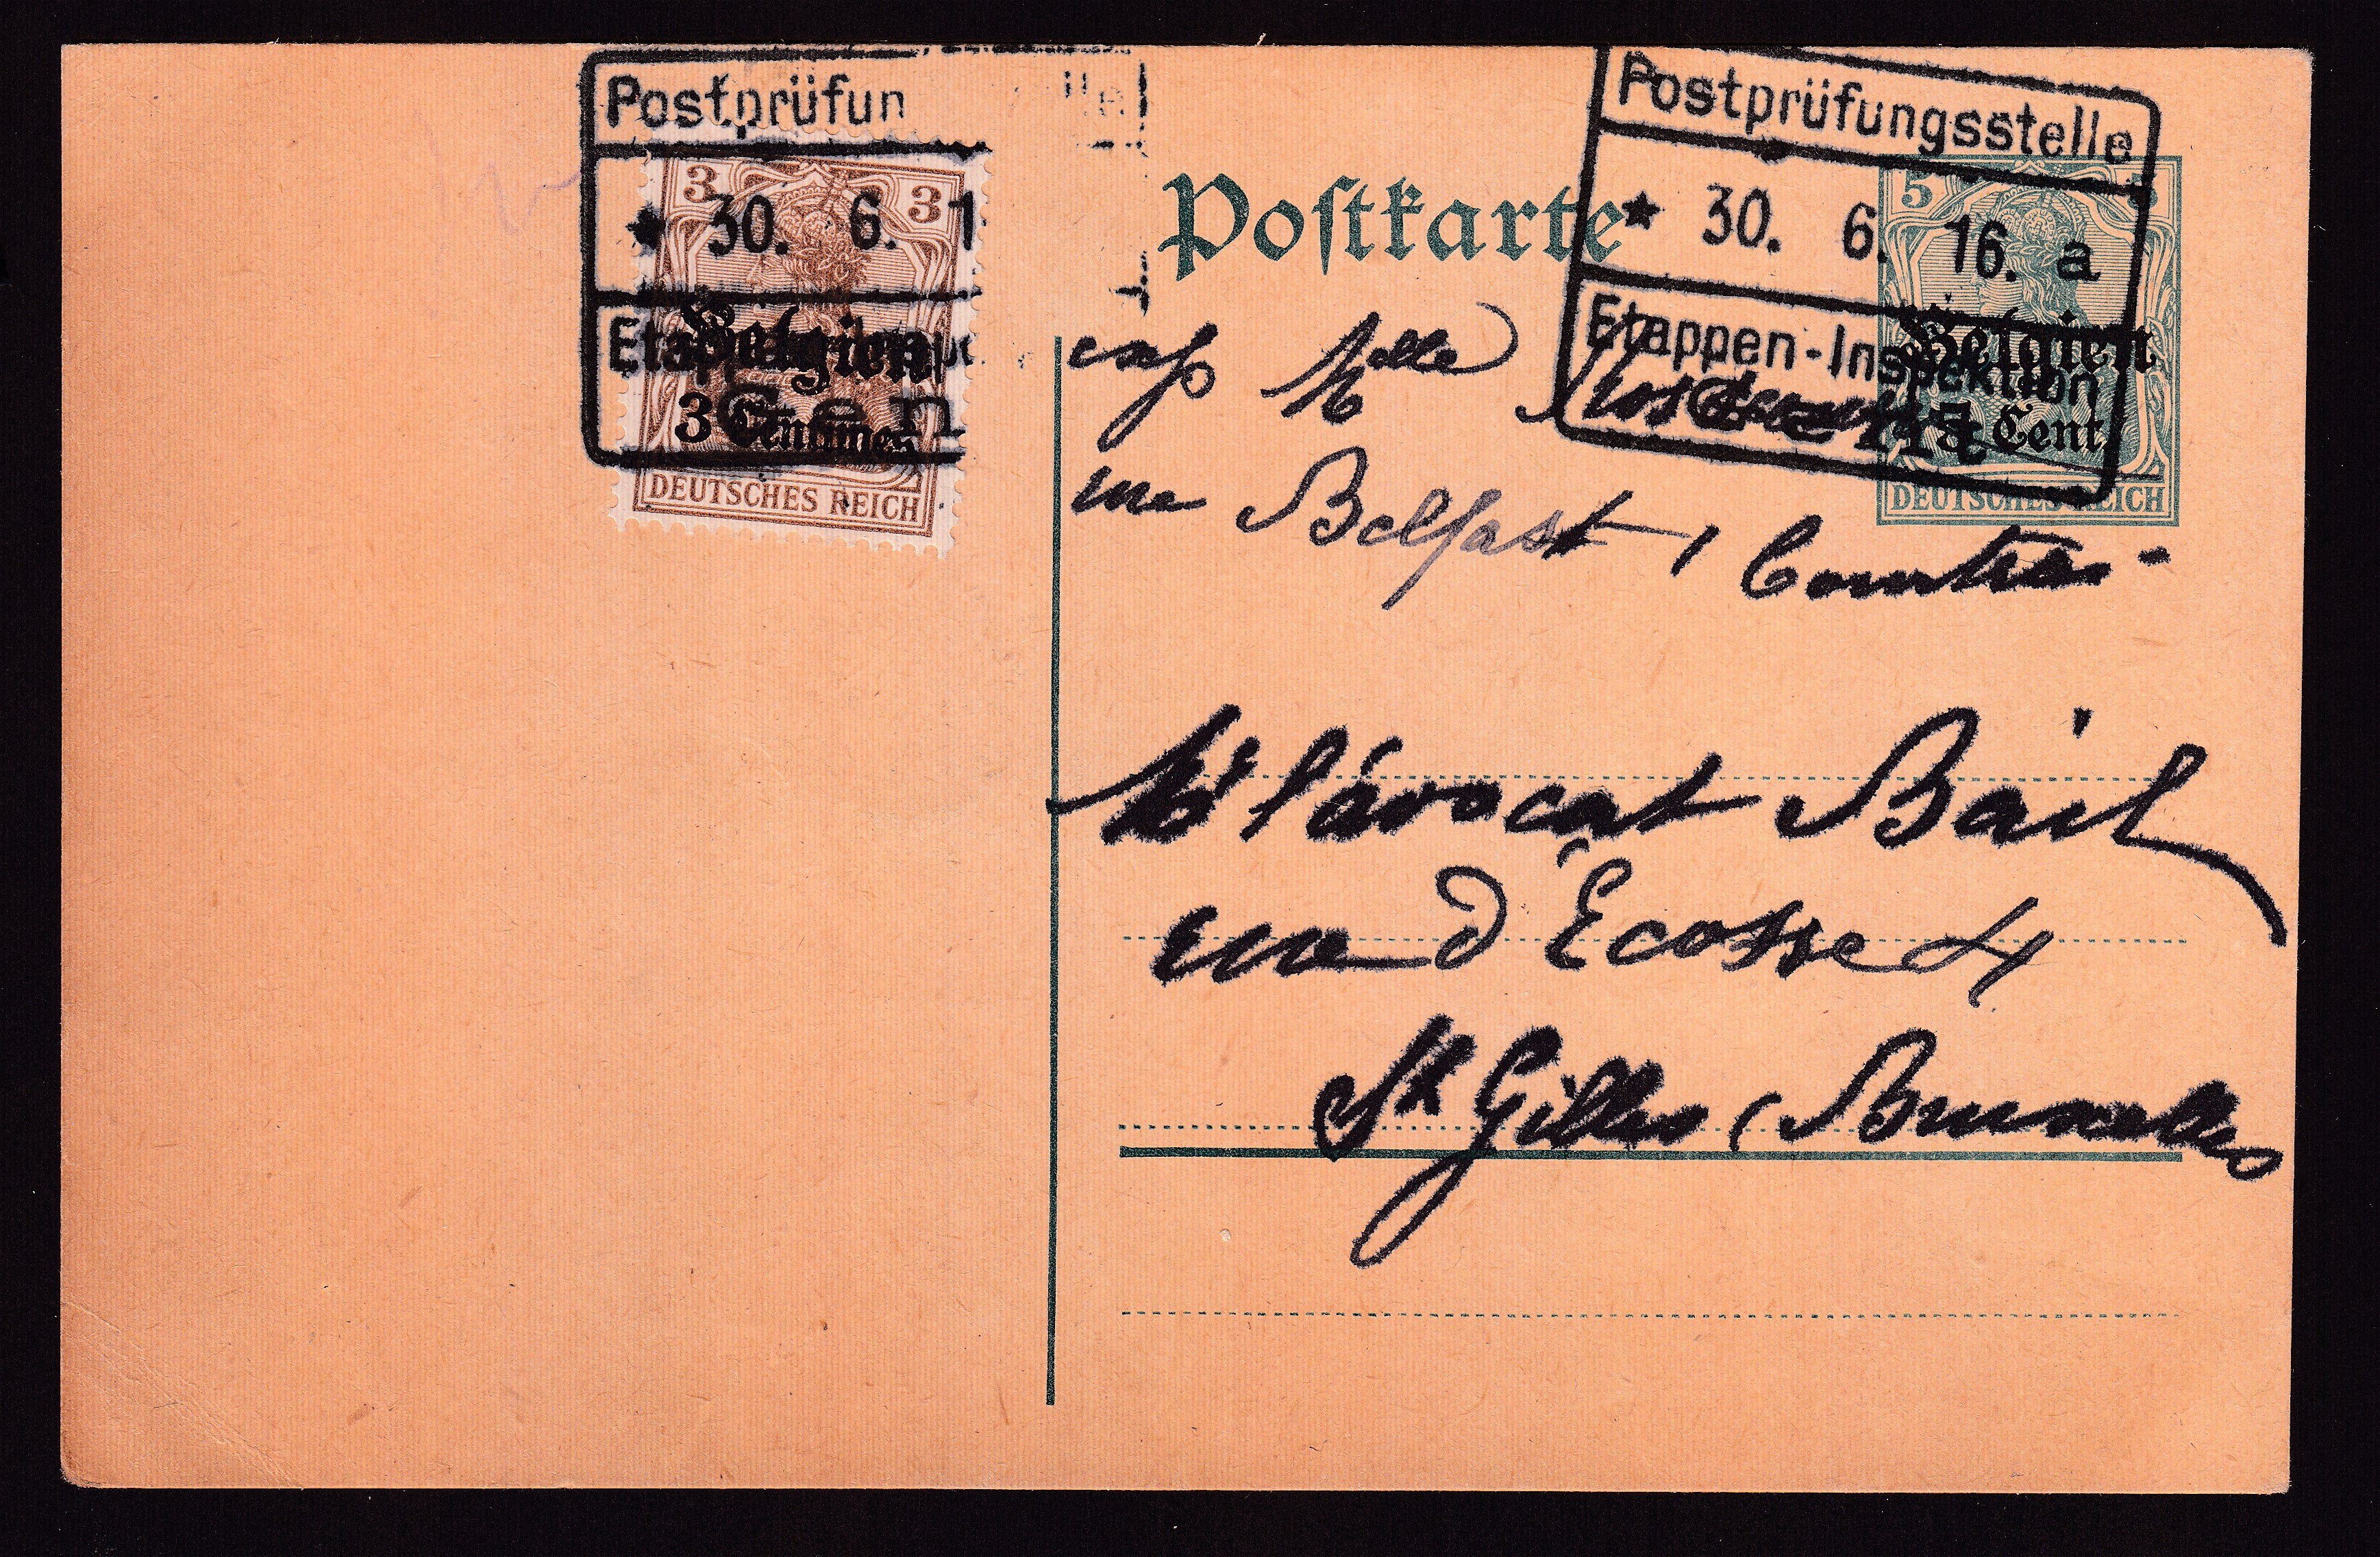 Postprüfun lle
* 30. 6. 1
3 3
Belgien
3 Centimes
Gen
DEUTSCHES REICH
Postkarte
Postprüfungsstelle
* 30. 6. 16. a
Etappen-Inspektion
Gent
5 5
Belgien
5 Cent.
DEUTSCHES REICH
exp Melle
rue Belfast, Courtrai
Mr l'avocat Bail
rue d'Écosse 4
St Gilles (Bruxelles